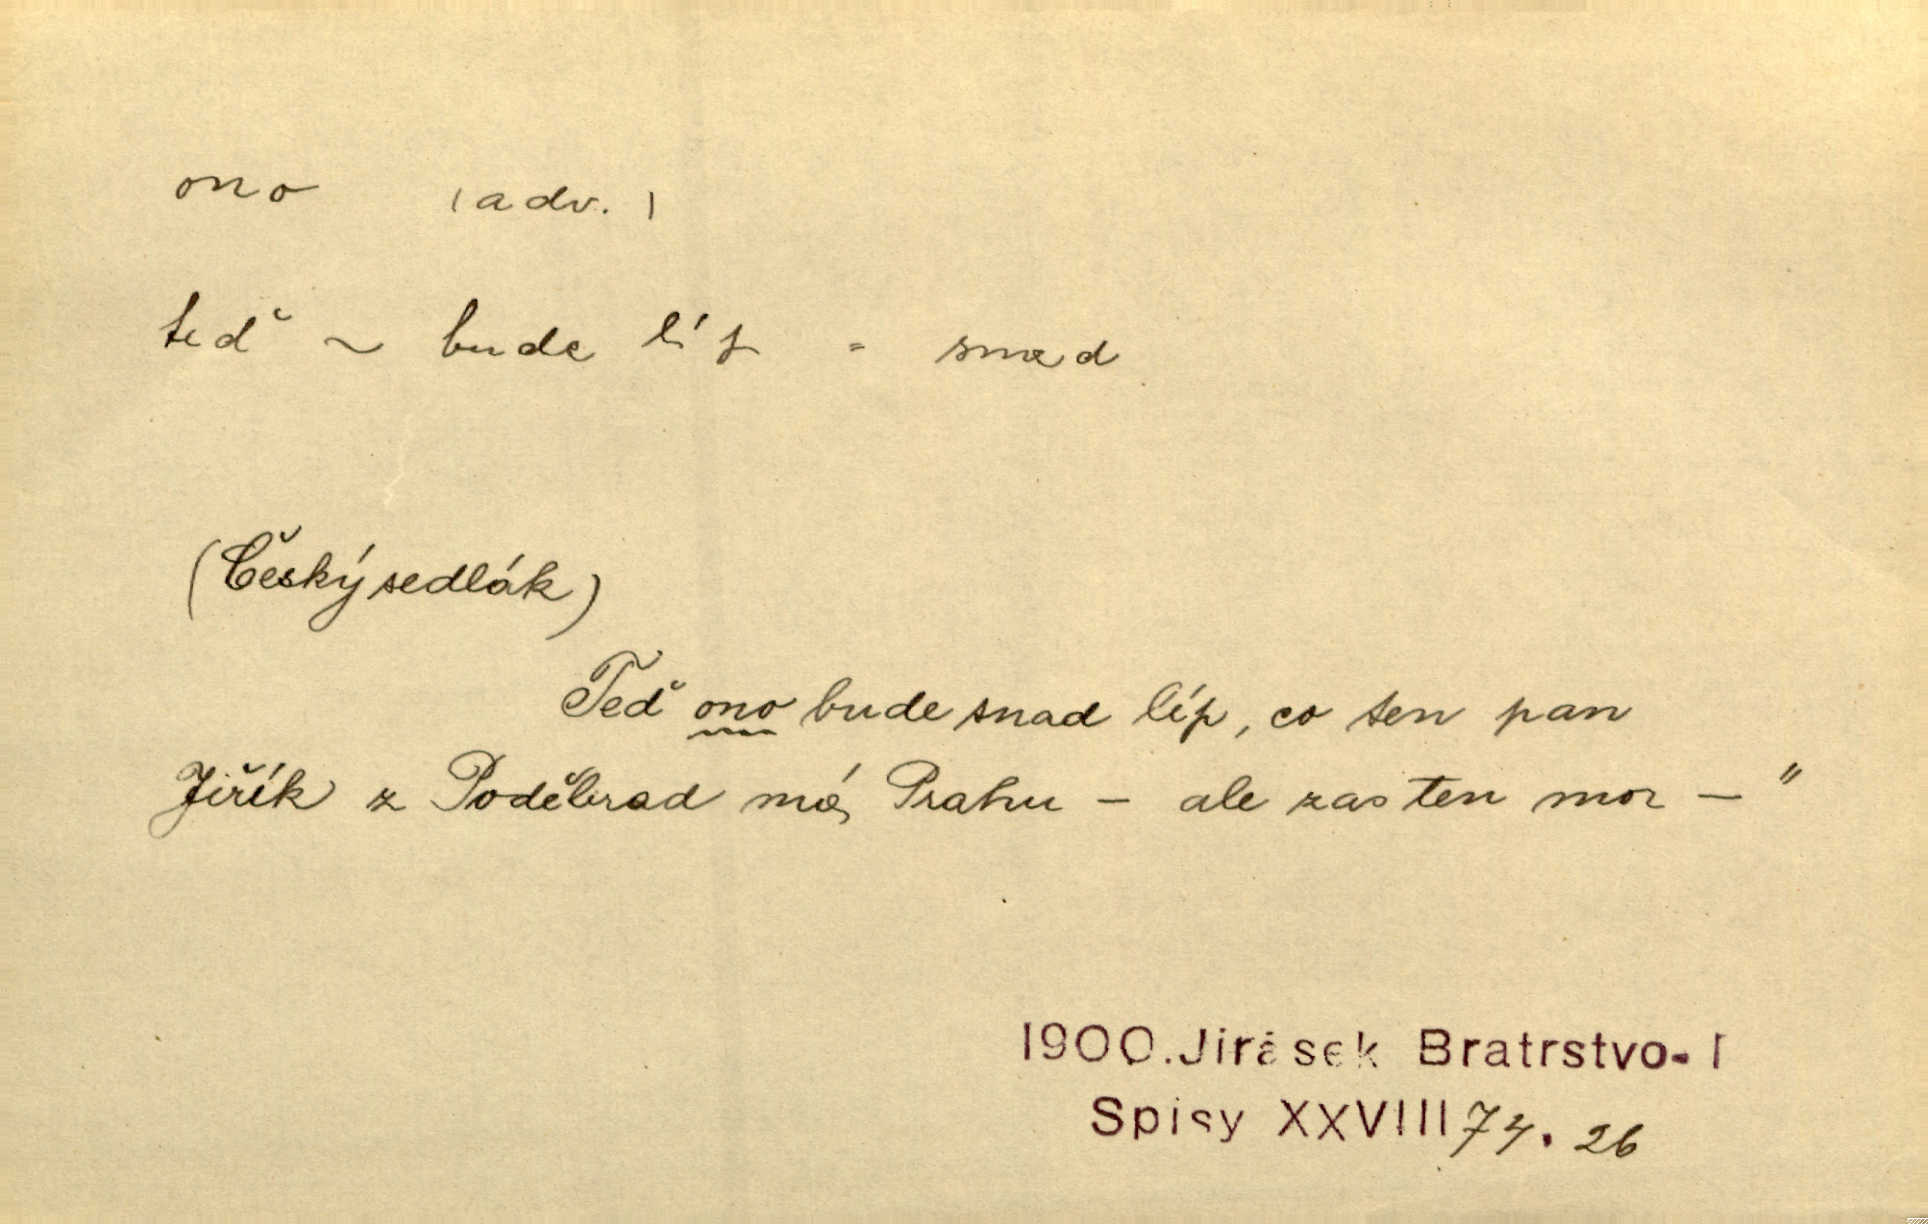 ono (adv.)
teď ~ bude líp = snad
(Český sedlák)
Teď ono bude snad líp, co ten pan
Jiřík z Poděbrad má Prahu – ale zas ten mor – "
1900. Jirásek Bratrstvo-I
Spisy XXVIII 74. 26